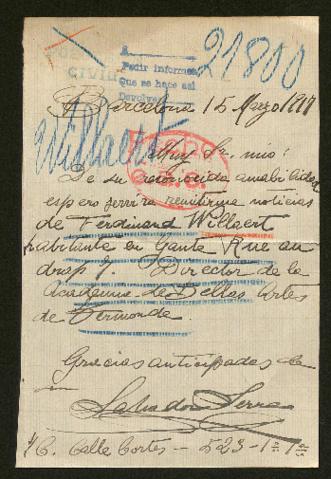 21800
A
Pedir informes
Que se hace asi
Devolver
CIVIL
Barcelona 15 Marzo 1917
Willaert
Muy Sr. mio:
De su reconocida amabilidad
espero servira remitirme noticias
de Ferdinand Willaert
habitante en Gante Rue au
draps 7. Director de la
Academie de Bellas Artes
de Termonde.
Gracias anticipadas de
Salvador Serra
Calle Cortes - 523 - 1º 1ª